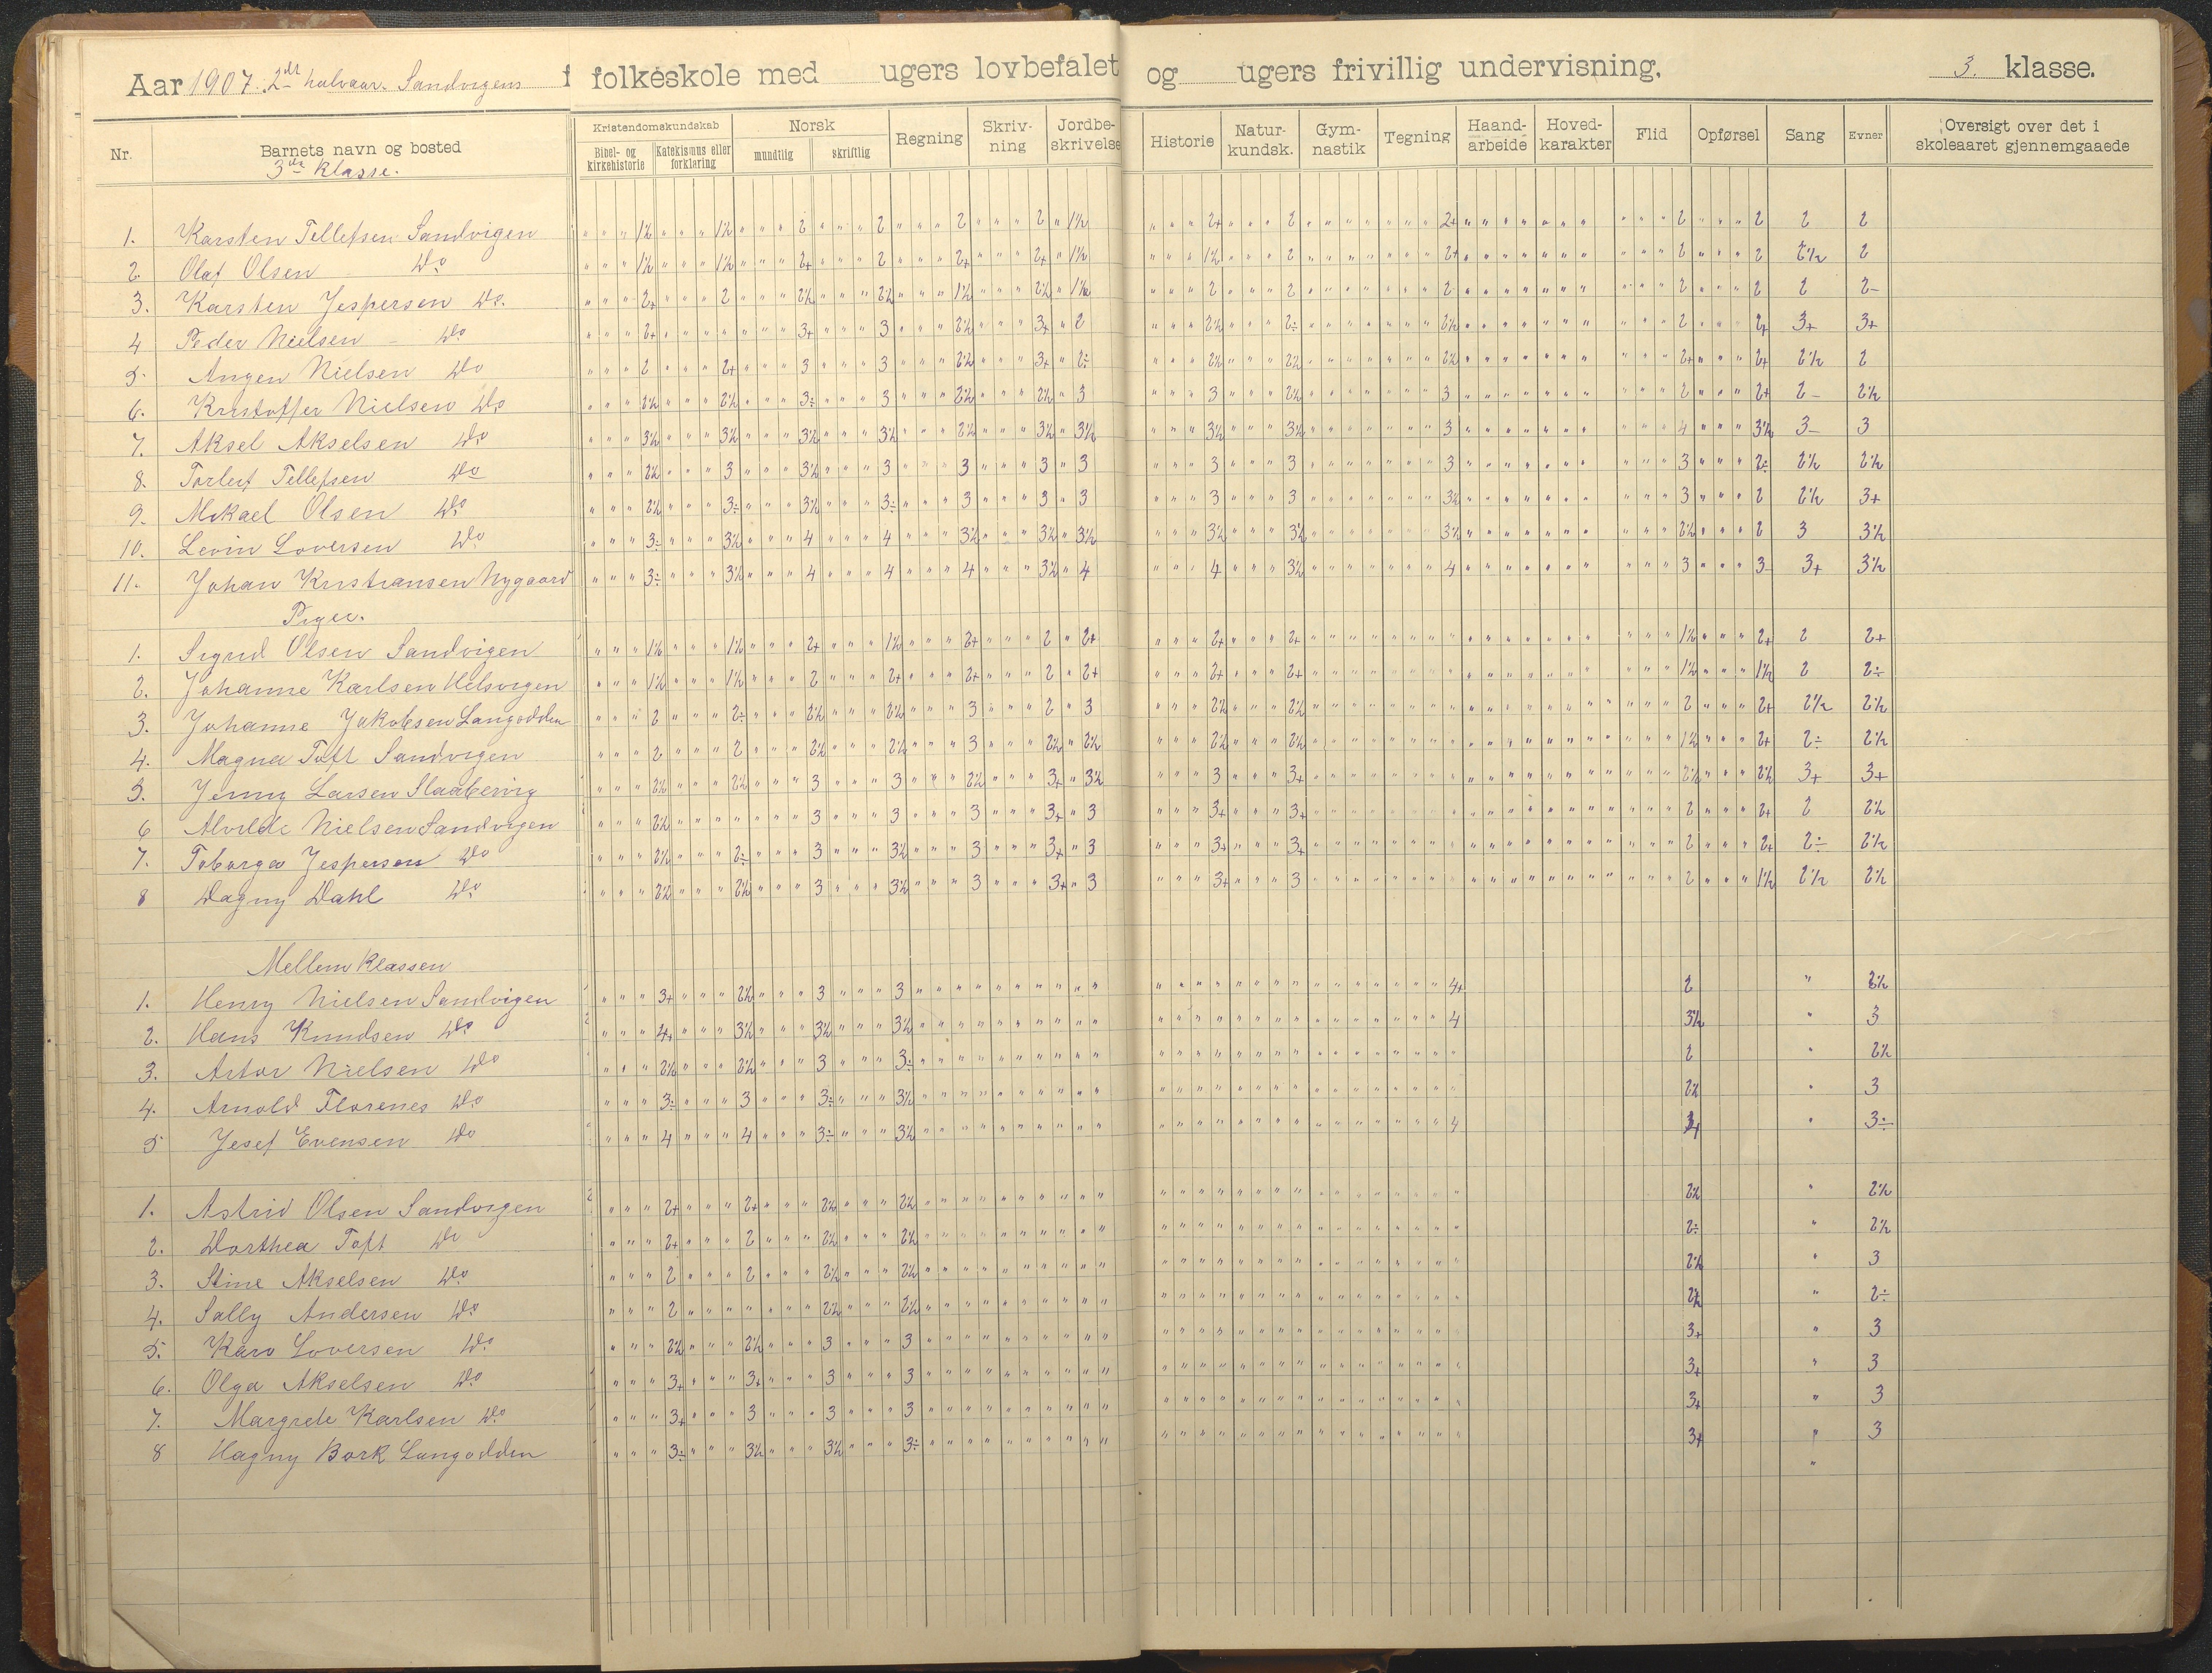 Aar 1907. 2det halvaar. Sandvigens f folkeskole med ugers lovbefalet og ugers frivillig undervisning. 3. klasse.
Nr. Barnets navn og bosted Kristendomskundskab Bibel- og kirkehistorie Katekismus eller forklaring Norsk mundtlig skriftlig Regning Skriv-ning Jordbe-skrivelse Historie Natur-kundsk. Gym-nastik Tegning Haand-arbeide Hoved-karakter Flid Opførsel Sang Evner Oversigt over det i skoleaaret gjennemgaaede
3die Klasse.
1. Karsten Tellefsen Sandvigen 1½ 1½ 2 2 2 2 1½ 2+ 2 2+ 2 2 2 2
2. Olaf Olsen Do 1½ 1½ 2+ 2 2+ 2+ 1½ 1½ 2 2+ 2 2 2½ 2
3. Karsten Jespersen Do. 2+ 2 2½ 2½ 1½ 2½ 1½ 2 2 2 2 2 2 2-
4 Peder Nielsen Do 2+ 3+ 3 2½ 3+ 2 2½ 2÷ 2½ 2 2+ 3+ 3+
5. Angen Nielsen Do 2 2+ 3 3 2½ 3+ 2÷ 2½ 2½ 2½ 2+ 2+ 2½ 2
6. Kristoffer Nielsen Do 2½ 2½ 3÷ 3 2½ 2½ 3 3 2½ 3 2 2+ 2- 2½
7. Aksel Akselsen Do 3½ 3½ 3½ 3½ 2½ 3½ 3½ 3½ 3½ 3 4 3½ 3- 3
8. Torleif Tellefsen Do 2½ 3 3½ 3 3 3 3 3 3 3 3 2÷ 2½ 2½
9. Mikael Olsen Do 2½ 3÷ 3½ 3÷ 3 3 3 3 3 3½ 3 2 2½ 3+
10. Levin Loversen Do 3÷ 3½ 4 4 3½ 3½ 3½ 3½ 3½ 3½ 2½ 2 3 3½
11. Johan Kristiansen Nygaard 3÷ 3½ 4 4 4 3½ 4 4 3½ 4 3 3- 3+ 3½
Piger.
1. Sigrid Olsen Sandvigen 1½ 1½ 2+ 1½ 2+ 2 2+ 2+ 2+ 1½ 2+ 2 2+
2. Johanne Karlsen Helsvigen 1½ 1½ 2 2+ 2+ 2 2+ 2+ 2+ 1½ 1½ 2 2÷
3. Johanne Jakobsen Langodden 2 2÷ 2½ 2½ 3 2 3 2½ 2½ 2 2+ 2½ 2½
4. Magna Toft Sandvigen 2 2 2½ 2½ 3 2½ 2½ 2½ 2½ 1½ 2+ 2÷ 2½
5. Jenny Larsen Slaabervig 2½ 2½ 3 3 2½ 3+ 3½ 3 3+ 2½ 2½ 3+ 3+
6 Alvilde Nielsen Sandvigen 2½ 3 3 3 3+ 3 3+ 3+ 2 2+ 2 2½
7. Toborga Jespersen Do 2½ 2÷ 3 3½ 3 3+ 3 3+ 3+ 2 2+ 2÷ 2½
8 Dagny Dahl Do 2½ 2½ 3 3½ 3 3+ 3 3+ 3 2 1½ 2½ 2½
Mellem Klassen
1. Henry Nielsen Sandvigen 3+ 2½ 3 3 4+ 2 " 2½
2. Hans Knudsen Do 4+ 3½ 3½ 3½ 4 3½ " 3
3. Artor Nielsen Do 2½ 2½ 3 3÷ 2 " 2½
4. Arnold Florenes Do 3÷ 3 3÷ 3½ 2½ " 3
5 Jesef Evensen Do 4 4 3÷ 3½ 4 " 3÷
1. Astrid Olsen Sandvigen 2+ 2+ 2½ 2½ 2½ " 2½
2. Dorthea Toft Do 2+ 2 2½ 2½ 2÷ " 2½
3. Stine Akselsen Do 2 2 2½ 2½ 2½ " 3
4. Sally Andersen Do 2 2½ 2½ 2½ " 2÷
5. Karo Loversen Do. 2½ 2½ 3 3 3+ " 3
6. Olga Akselsen Do 3+ 3+ 3 3 3+ " 3
7. Margrete Karlsen Do 3+ 3 3 3 3+ " 3
8 Hagny Bork Langodden 3÷ 3½ 3½ 3÷ 3+ " 3
"